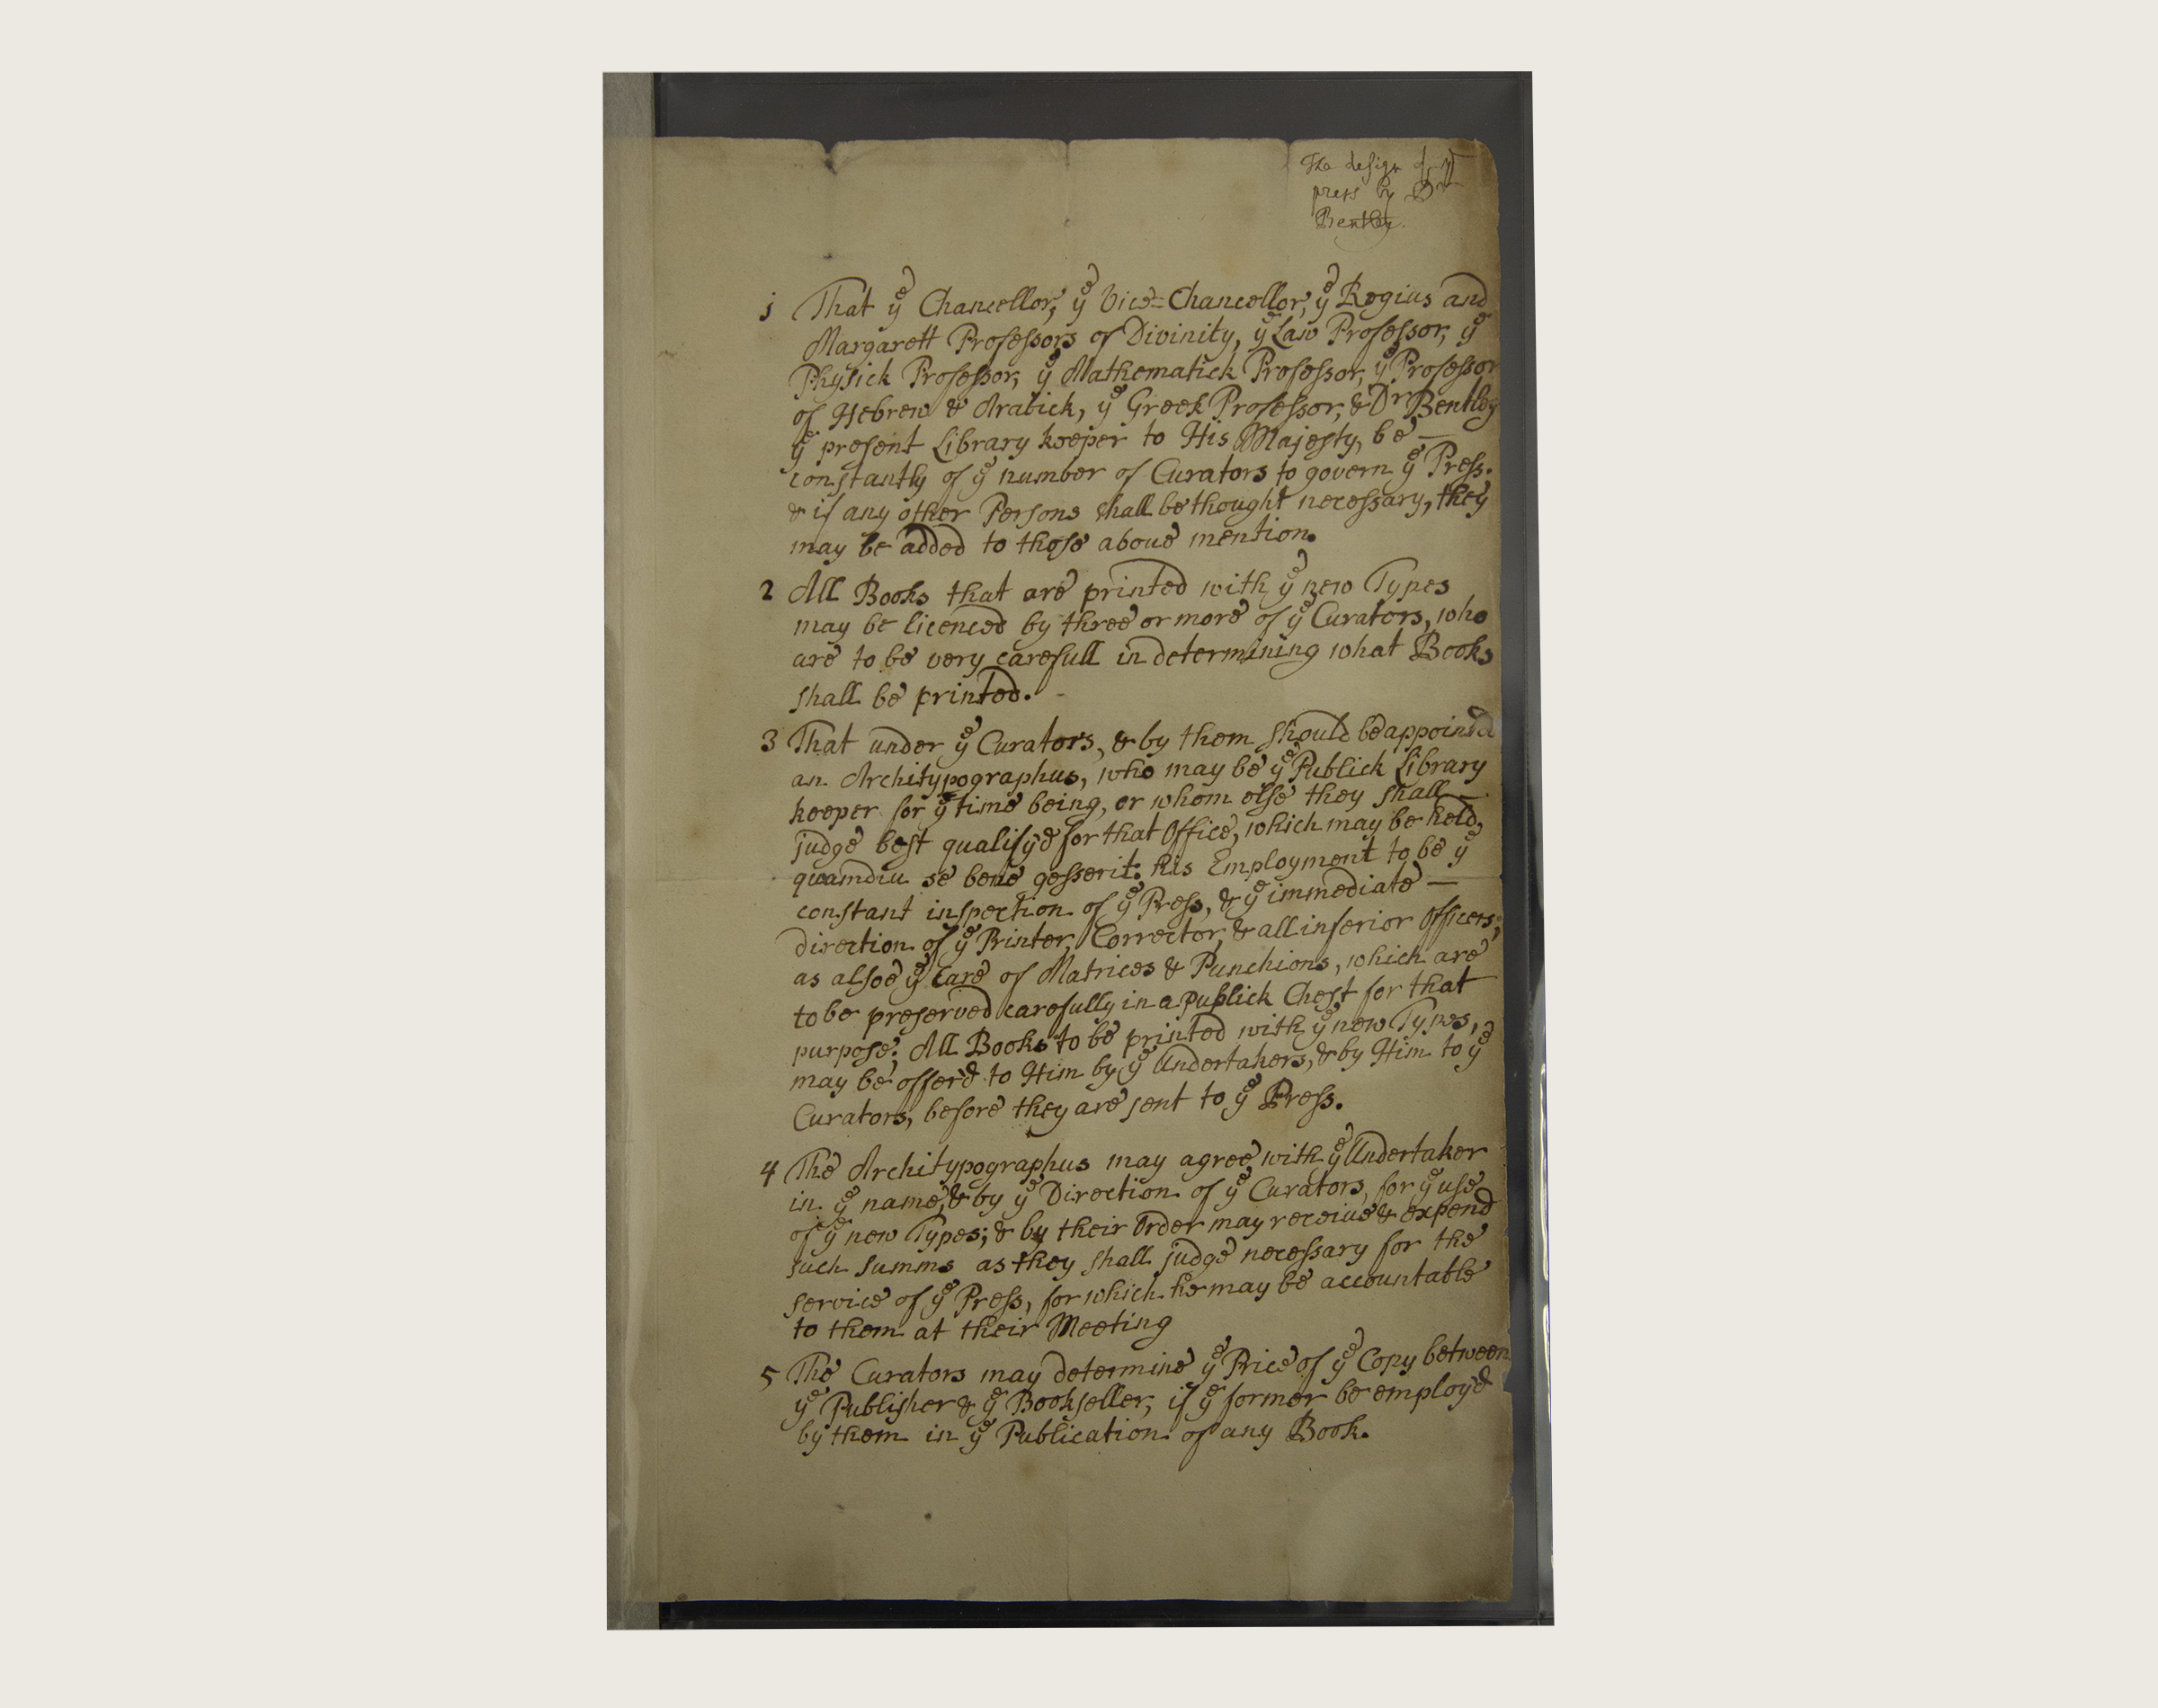 The design of yᵉ
press by Dʳ
Bentley.
1 That yᵉ Chancellor, yᵉ Vice=Chancellor, yᵉ Regius and
Margarett Professors of Divinity, yᵉ Law Professor, yᵉ
Physick Professor, yᵉ Mathematick Professor, yᵉ Professor
of Hebrew & Arabick, yᵉ Greek Professor, & Dr Bentley
yᵉ present Library keeper to His Majesty, be —
constantly of yᵉ number of Curators to govern yᵉ Press.
& if any other Persons shall be thought necessary, they
may be added to those above mention.
2 All Books that are printed with yᵉ new Types
may be licenced by three or more of yᵉ Curators, who
are to be very carefull in determining what Books
shall be printed.
3 That under yᵉ Curators, & by them should be appointd
an Architypographus, who may be yᵉ Publick Library
keeper for yᵉ time being, or whom else they shall —
judge best qualify'd for that Office, which may be held,
quamdiu se bene gesserit: his Employment to be yᵉ
constant inspection of yᵉ Press, & yᵉ immediate —
direction of yᵉ Printer, Corrector, & all inferior Officers;
as alsoe yᵉ care of Matrices & Punchions, which are
to be preserved carefully in a publick Chest for that
purpose; All Books to be printed with yᵉ new Types,
may be offer'd to Him by yᵉ Undertakers, & by Him to yᵉ
Curators, before they are sent to yᵉ Press.
4 The Architypographus may agree with yᵉ Undertaker
in yᵉ name, & by yᵉ Direction of yᵉ Curators, for yᵉ use
of yᵉ new Types; & by their Order may receive & expend
such summs as they shall judge necessary for the
service of yᵉ Press, for which he may be accountable
to them at their Meeting
5 The Curators may determine yᵉ Price of yᵉ Copy between
yᵉ Publisher & yᵉ Bookseller, if yᵉ former be employ'd
by them in yᵉ Publication of any Book.